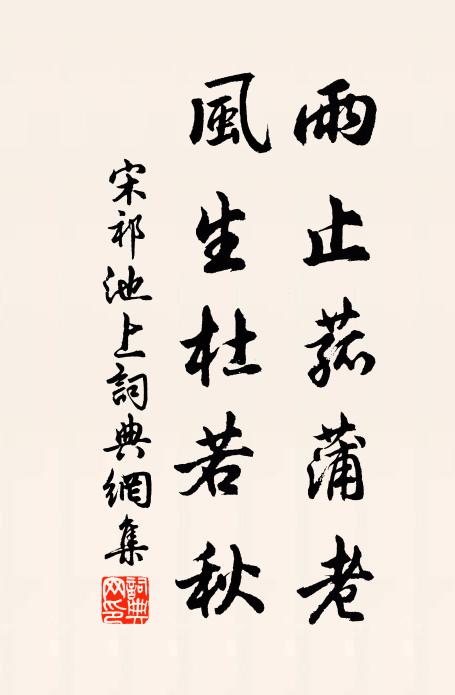 雨止菰蒲老
風生杜若秋
宋祁池上詞典網集
詞典網印